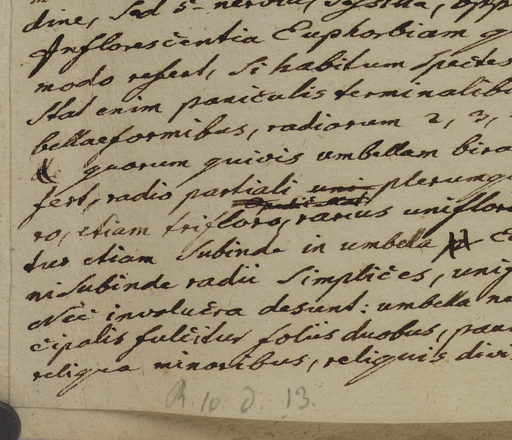 dine, sed 5-nervia, sessilia, opp
Inflorescentia Euphorbiam q
modo refert, si habitum spectes
Stat enim paniculis terminalib
bellaeformibus, radiorum 2, 3,
quorum quivis umbellam bira
fert, radio partiali uni plerumq
ro, etiam trifloro, rarius uniflor
tur etiam subinde in umbella
ni subinde radii simplices, uni
Nec involucra desunt: umbella
cipalis fulcitur foliis duobus, pau
reliqua minoribus, reliquis divi
R 10. d. 13.